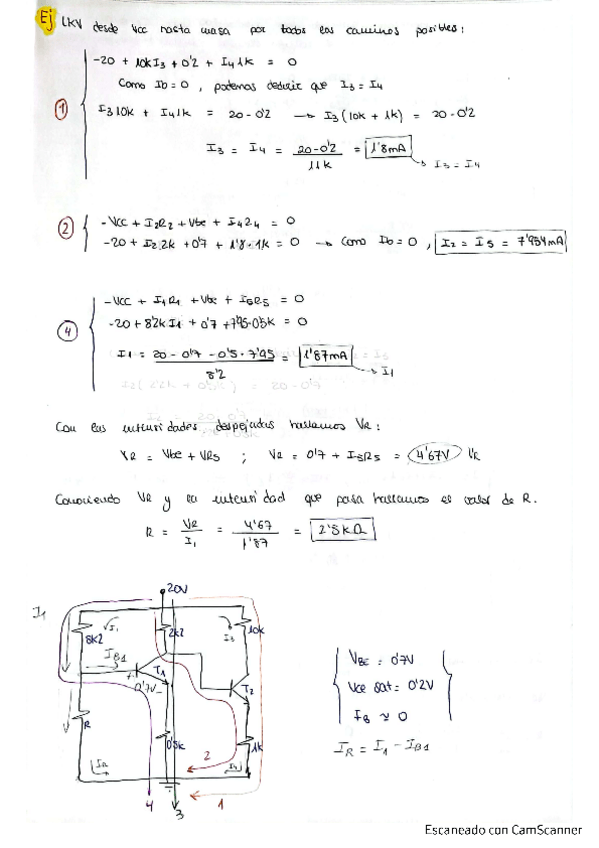 Ej LKV desde Vcc hasta masa por todos los caminos posibles:
-20 + 10kI3 + 0'2 + I4 1k = 0
Como Ib = 0, podemos deducir que I3 = I4
① I3 10k + I4 1k = 20 - 0'2 → I3 (10k + 1k) = 20 - 0'2
I3 = I4 = 20-0'2 / 11k = 1'8mA → I3 = I4
② -Vcc + I2R2 + Vbe + I4R4 = 0
-20 + I2 2k + 0'7 + 1'8·1k = 0 → Como Ib = 0, I2 = I5 = 7'954mA
④ -Vcc + I1R1 + Vbe + I5R5 = 0
-20 + 8'2k I1 + 0'7 + 7'95·0'5k = 0
I1 = 20 - 0'7 - 0'5·7'95 / 8'2 = 1'87mA → I1
Con las intensidades despejadas hallamos VR:
VR = Vbe + VR5 ; VR = 0'7 + I5R5 = 4'67V VR
Conociendo VR y la intensidad que pasa hallamos el valor de R.
R = VR / I1 = 4'67 / 1'87 = 2'5kΩ
20V
I1
8k2
I1
2k2
I3
10k
IB1
T1
0'7V
T2
R
0'5k
1k
2
IR
I4
4
3
1
VBE = 0'7V
Vce sat = 0'2V
IB ≃ 0
IR = I1 - IB1
Escaneado con CamScanner